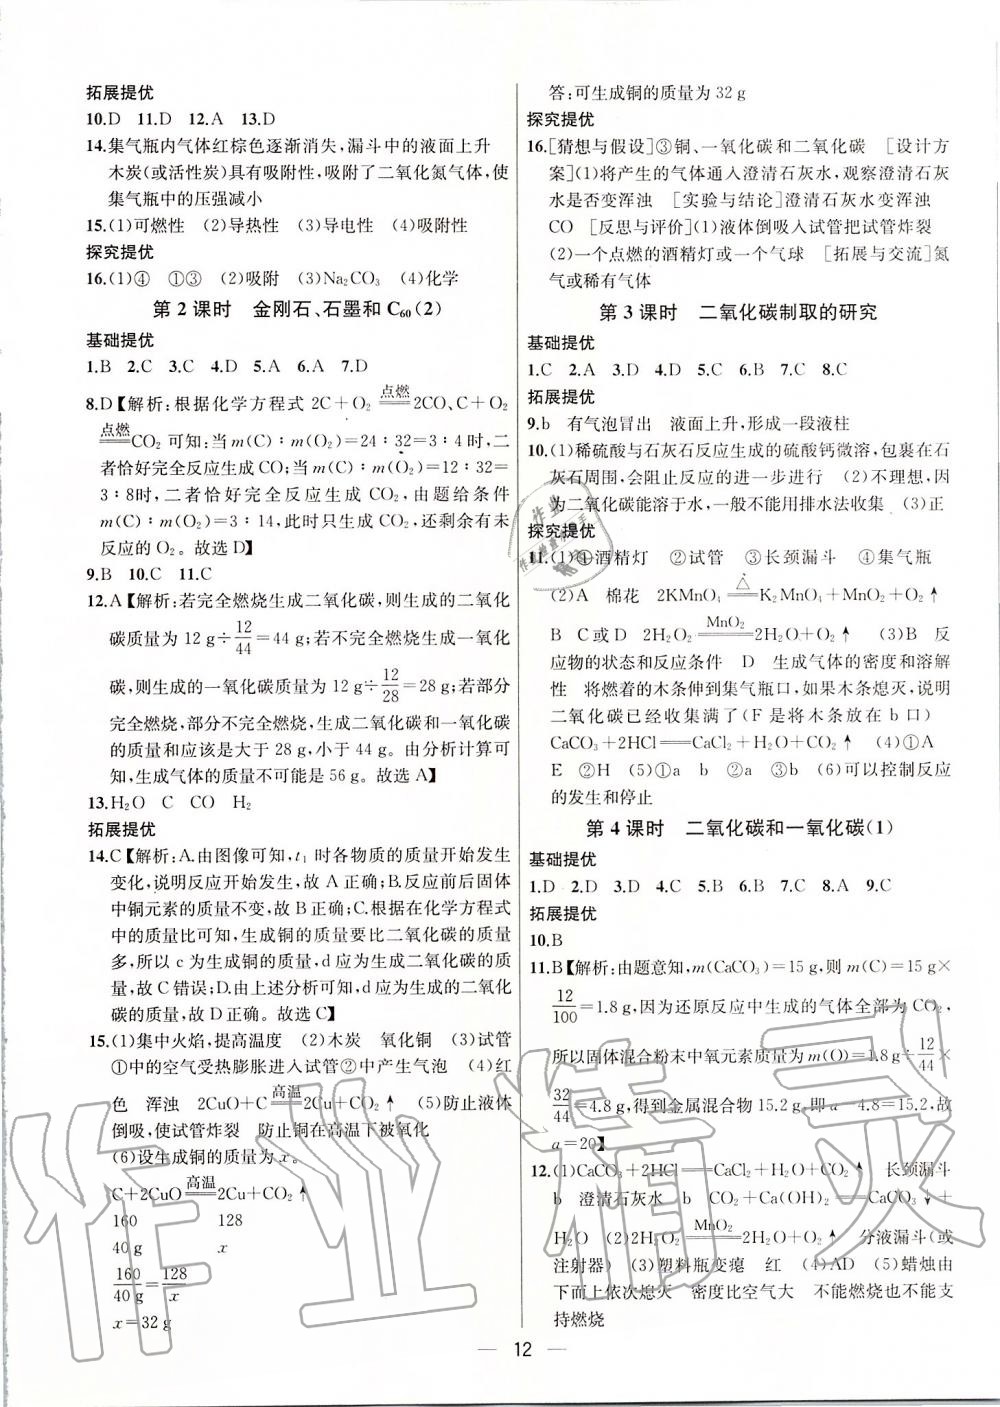 拓展提优
10.D 11.D 12.A 13.D
14.集气瓶内气体红棕色逐渐消失,漏斗中的液面上升
木炭(或活性炭)具有吸附性,吸附了二氧化氮气体,使
集气瓶中的压强减小
15.(1)可燃性 (2)导热性 (3)导电性 (4)吸附性
探究提优
16.(1)④ ①③ (2)吸附 (3)Na₂CO₃ (4)化学
第2课时 金刚石、石墨和C₆₀(2)
基础提优
1.B 2.C 3.C 4.D 5.A 6.A 7.D
8.D【解析:根据化学方程式 2C+O₂ 点燃══ 2CO、C+O₂
点燃══ CO₂ 可知:当 m(C)∶m(O₂)=24∶32=3∶4时,二
者恰好完全反应生成CO;当 m(C)∶m(O₂)=12∶32=
3∶8时,二者恰好完全反应生成CO₂,由题给条件
m(C)∶m(O₂)=3∶14,此时只生成CO₂,还剩余有未
反应的O₂。故选D】
9.B 10.C 11.C
12.A【解析:若完全燃烧生成二氧化碳,则生成的二氧化
碳质量为 12 g÷12/44=44 g;若不完全燃烧生成一氧化
碳,则生成的一氧化碳质量为 12 g÷12/28=28 g;若部分
完全燃烧,部分不完全燃烧,生成二氧化碳和一氧化碳
的质量和应该是大于28 g,小于44 g。由分析计算可
知,生成气体的质量不可能是56 g。故选A】
13.H₂O C CO H₂
拓展提优
14.C【解析:A.由图像可知,t₁时各物质的质量开始发生
变化,说明反应开始发生,故A正确;B.反应前后固体
中铜元素的质量不变,故B正确;C.根据在化学方程式
中的质量比可知,生成铜的质量要比二氧化碳的质量
多,所以c为生成铜的质量,d应为生成二氧化碳的质
量,故C错误;D.由上述分析可知,d应为生成的二氧化
碳的质量,故D正确。故选C】
15.(1)集中火焰,提高温度 (2)木炭 氧化铜 (3)试管
①中的空气受热膨胀进入试管②中产生气泡 (4)红
色 浑浊 2CuO+C 高温══ 2Cu+CO₂↑ (5)防止液体
倒吸,使试管炸裂 防止铜在高温下被氧化
(6)设生成铜的质量为x。
C+2CuO 高温══ 2Cu+CO₂↑
160 128
40 g x
160/40 g=128/x
x=32 g
答:可生成铜的质量为32 g
探究提优
16.[猜想与假设]③铜、一氧化碳和二氧化碳 [设计方
案](1)将产生的气体通入澄清石灰水,观察澄清石灰
水是否变浑浊 [实验与结论]澄清石灰水变浑浊
CO [反思与评价](1)液体倒吸入试管把试管炸裂
(2)一个点燃的酒精灯或一个气球 [拓展与交流]氮
气或稀有气体
第3课时 二氧化碳制取的研究
基础提优
1.C 2.A 3.D 4.D 5.C 6.B 7.C 8.C
拓展提优
9.b 有气泡冒出 液面上升,形成一段液柱
10.(1)稀硫酸与石灰石反应生成的硫酸钙微溶,包裹在石
灰石周围,会阻止反应的进一步进行 (2)不理想,因
为二氧化碳能溶于水,一般不能用排水法收集 (3)正
探究提优
11.(1)①酒精灯 ②试管 ③长颈漏斗 ④集气瓶
(2)A 棉花 2KMnO₄ △══ K₂MnO₄+MnO₂+O₂↑
B C或D 2H₂O₂ MnO₂══ 2H₂O+O₂↑ (3)B 反
应物的状态和反应条件 D 生成气体的密度和溶解
性 将燃着的木条伸到集气瓶口,如果木条熄灭,说明
二氧化碳已经收集满了(F是将木条放在b口)
CaCO₃+2HCl══CaCl₂+H₂O+CO₂↑ (4)①A
E ②H (5)①a b ②a ③b (6)可以控制反应
的发生和停止
第4课时 二氧化碳和一氧化碳(1)
基础提优
1.D 2.D 3.D 4.C 5.B 6.B 7.B 8.A 9.C
拓展提优
10.B
11.B【解析:由题意知,m(CaCO₃)=15 g,则m(C)=15 g×
12/100=1.8 g,因为还原反应中生成的气体全部为CO₂,
所以固体混合粉末中氧元素质量为m(O)=1.8 g÷12/44×
32/44=4.8 g,得到金属混合物15.2 g,即a-4.8=15.2,故
a=20】
12.(1)CaCO₃+2HCl══CaCl₂+H₂O+CO₂↑ 长颈漏斗
b 澄清石灰水 b CO₂+Ca(OH)₂══CaCO₃↓+
H₂O (2)2H₂O₂ MnO₂══ 2H₂O+O₂↑ 分液漏斗(或
注射器) (3)塑料瓶变瘪 红 (4)AD (5)蜡烛由
下而上依次熄灭 密度比空气大 不能燃烧也不能支
持燃烧
12
作业精灵